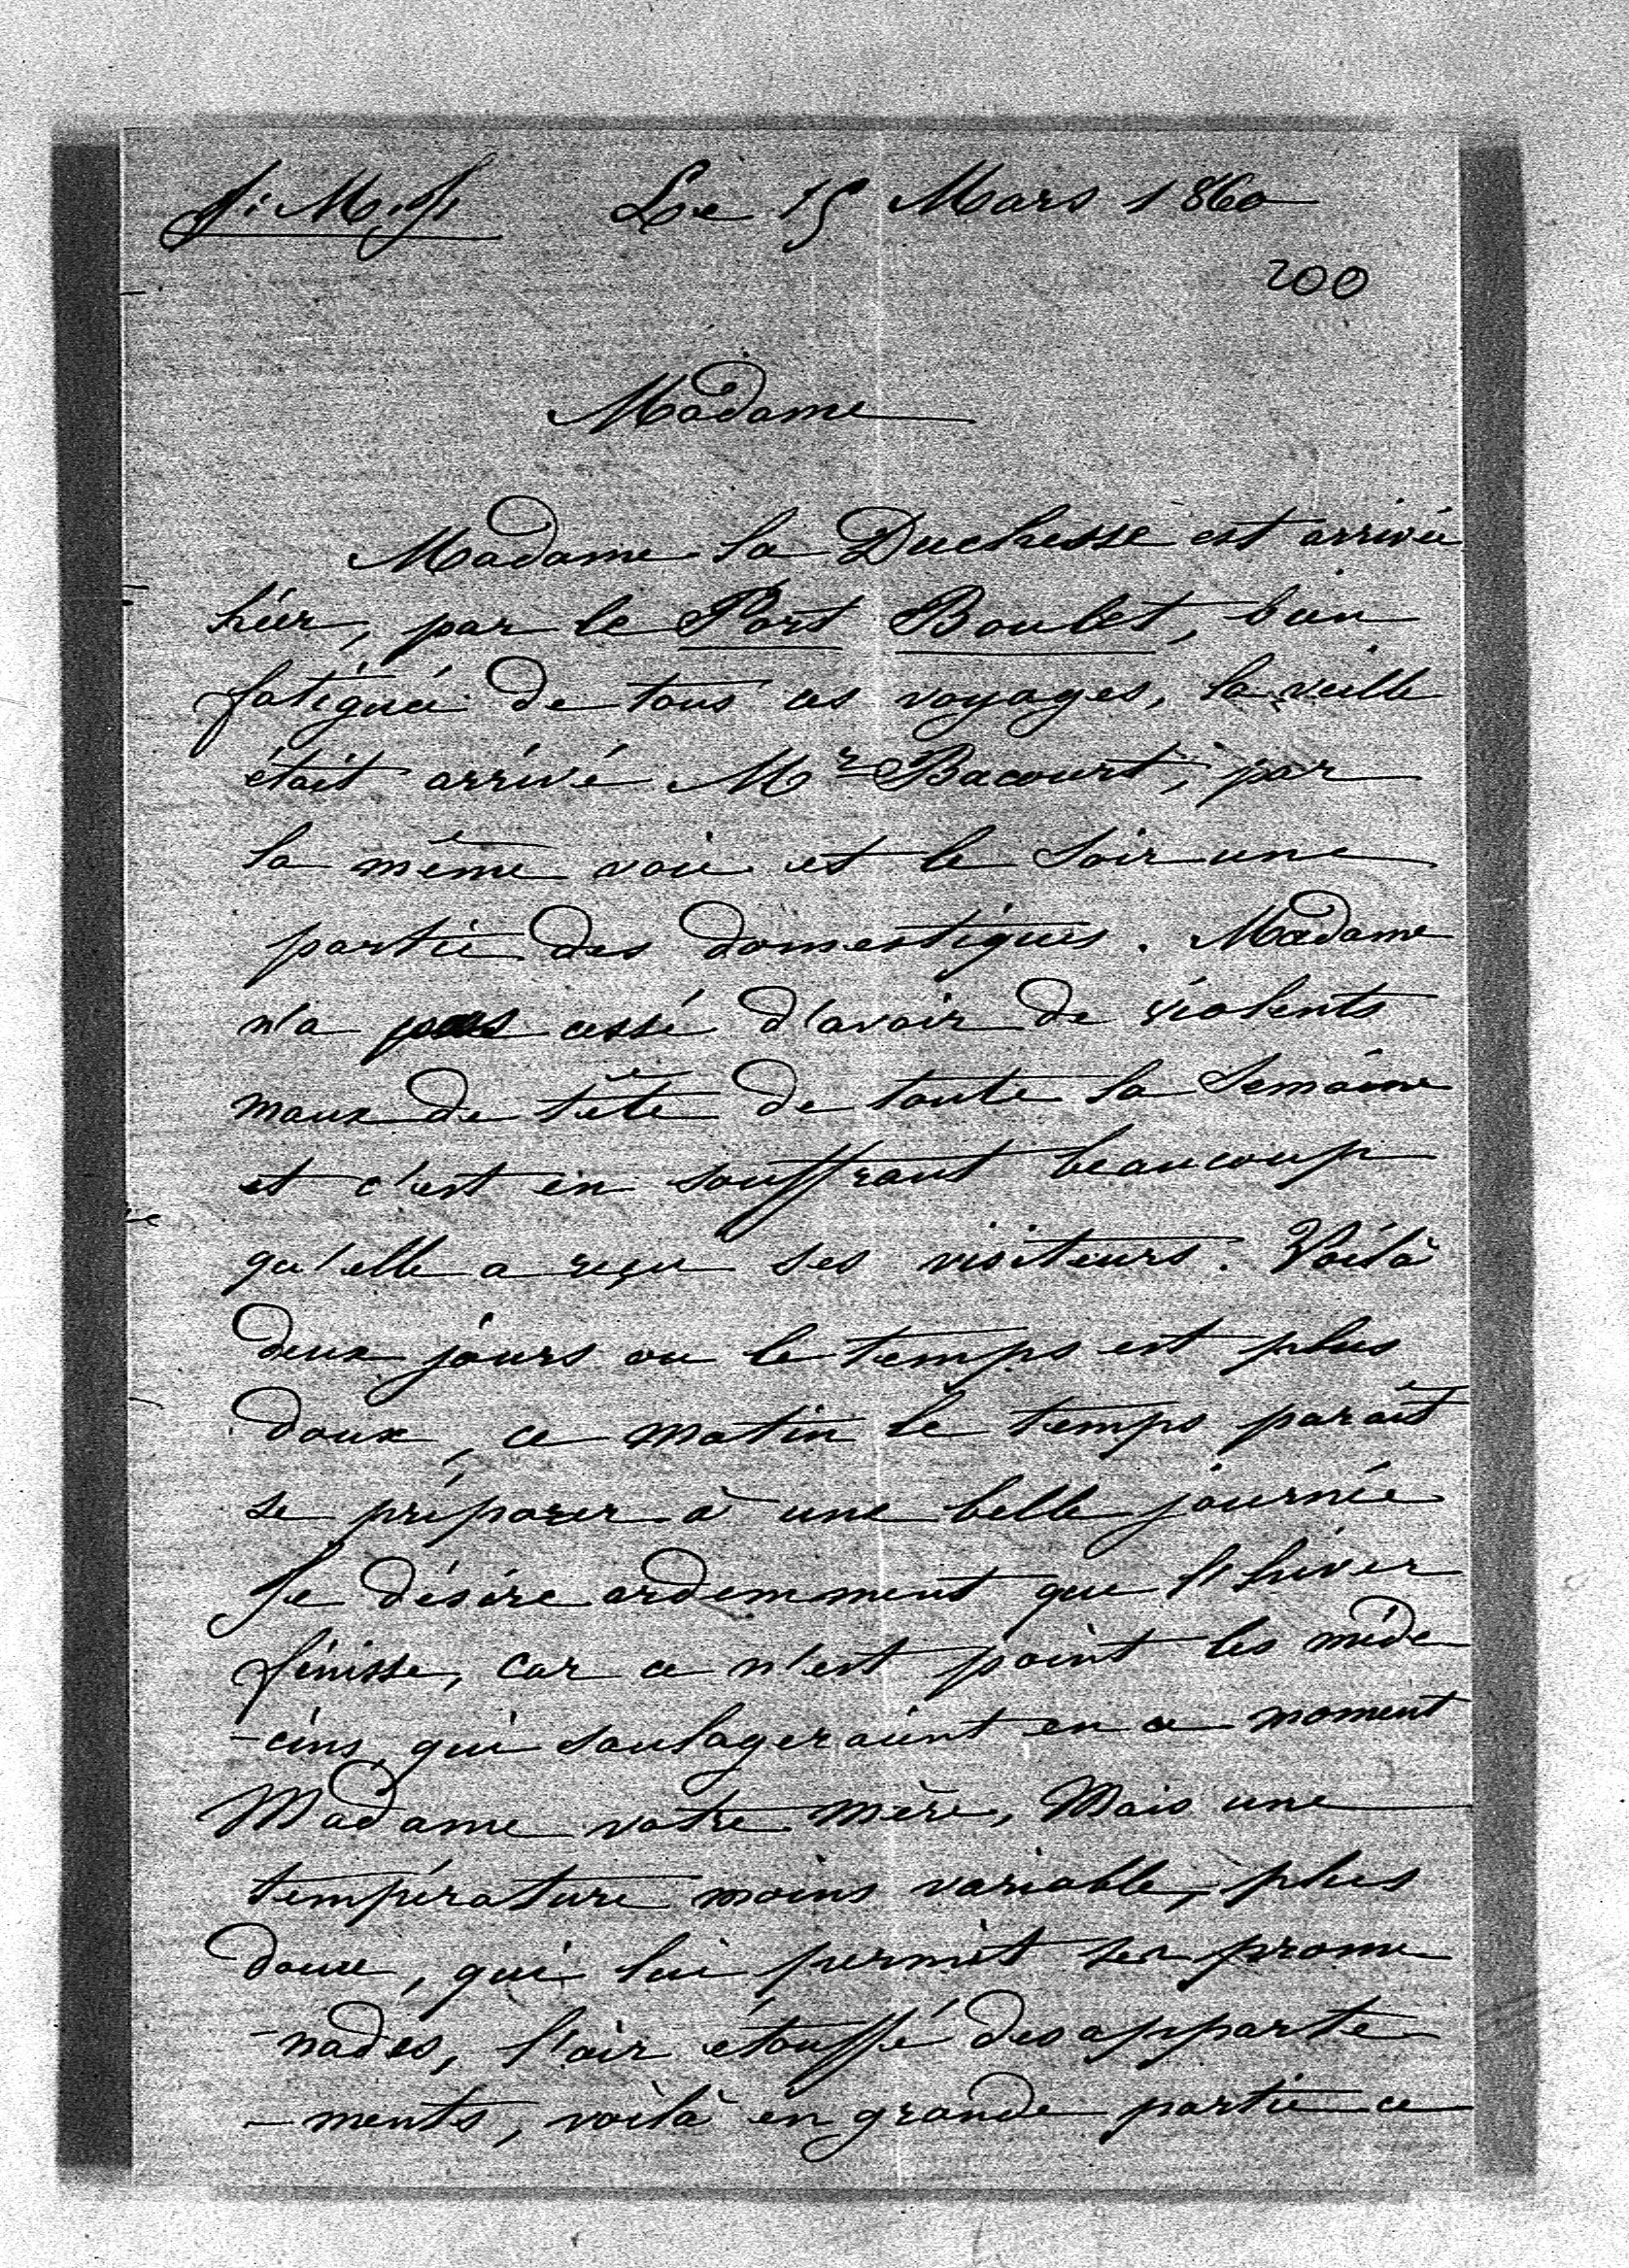 J. M. J. Le 15 Mars 1860
200
Madame
Madame la Duchesse est arrivée
hier, par le Port Boulet, bien
fatiguée de tous ces voyages, la veille
était arrivé Mr Bacourt, par
la même voie et le soir une
partie des domestiques. Madame
n'a pas cessé d'avoir de violents
maux de tête de toute la semaine
et c'est en souffrant beaucoup
qu'elle a reçu ses visiteurs. Voilà
deux jours ou le temps est plus
doux, ce matin le temps paraît
se préparer à une belle journée
Je désire ardemment que l'hiver
finisse, car ce n'est point les méde
-cins qui soulageraient en ce moment
Madame votre mère, Mais une
température moins variable, plus
douce, qui lui permit ses prome
-nades, l'air étouffé des apparte
-ments, voilà en grande partie ce